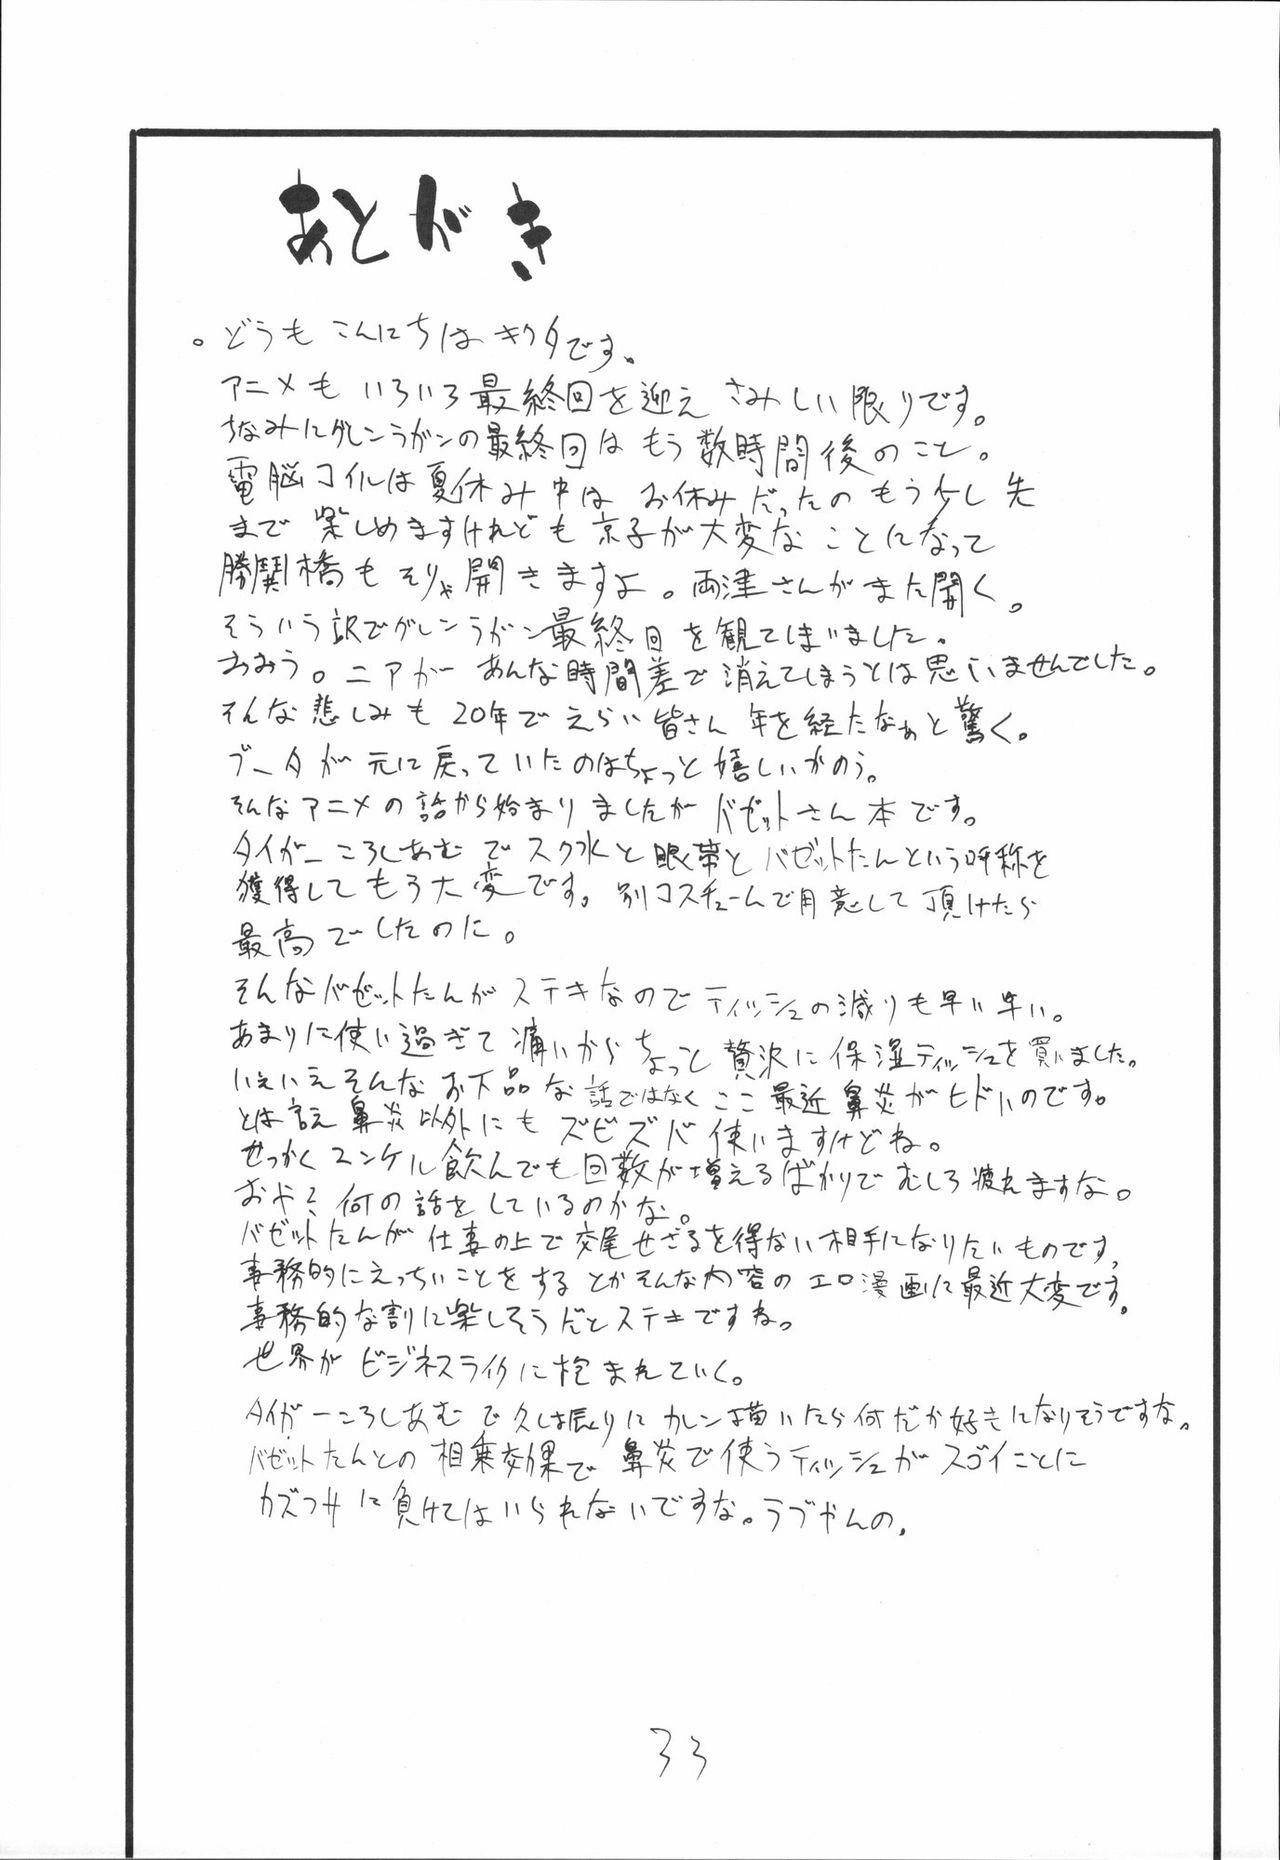 あとがき
。どうもこんにちは キクタです。
アニメも いろいろ最終回を迎え さみしい限りです。
ちなみにグレンラガンの最終回は もう数時間後のこと。
電脳コイルは夏休み中は お休みだったの もう少し先
まで 楽しめますけれども 京子が大変なことになって
勝鬨橋もそりゃ開きますよ。両津さんがまた開く。
そういう訳でグレンラガン最終回を観てしまいました。
おおう。ニアが あんな時間差で消えてしまうとは思いませんでした。
そんな悲しみも 20年でえらい皆さん 年を経たなぁと驚く。
ブータが 元に戻っていたのはちょっと嬉しいかのう。
そんなアニメの話から始まりましたが バゼットさん本です。
タイガーころしあむでスク水と眼帯とバゼットたんという呼称を
獲得してもう大変です。別コスチュームで用意して頂けたら
最高でしたのに。
そんなバゼットたんがステキなのでティッシュの減りも早い早い。
あまりに使い過ぎて痛いからちょっと贅沢に保湿ティッシュを買いました。
いえいえそんなお下品な話ではなくここ最近鼻炎がヒドいのです。
とは言え鼻炎以外にもズビズバ使いますけどね。
せっかくユンケル飲んでも回数が増えるばかりでむしろ疲れますな。
おや?何の話をしているのかな。
バゼットたんが仕事の上で交尾せざるを得ない相手になりたいものです。
事務的にえっちいことをするとかそんな内容のエロ漫画に最近大変です。
事務的な割に楽しそうだとステキですね。
世界がビジネスライクに包まれていく。
タイガーころしあむで久しぶりにカレン描いたら何だか好きになりそうですな。
バゼットたんとの相乗効果で 鼻炎で使うティッシュがスゴイことに
カズフサに負けてはいられないですな。ラブやんの。
33